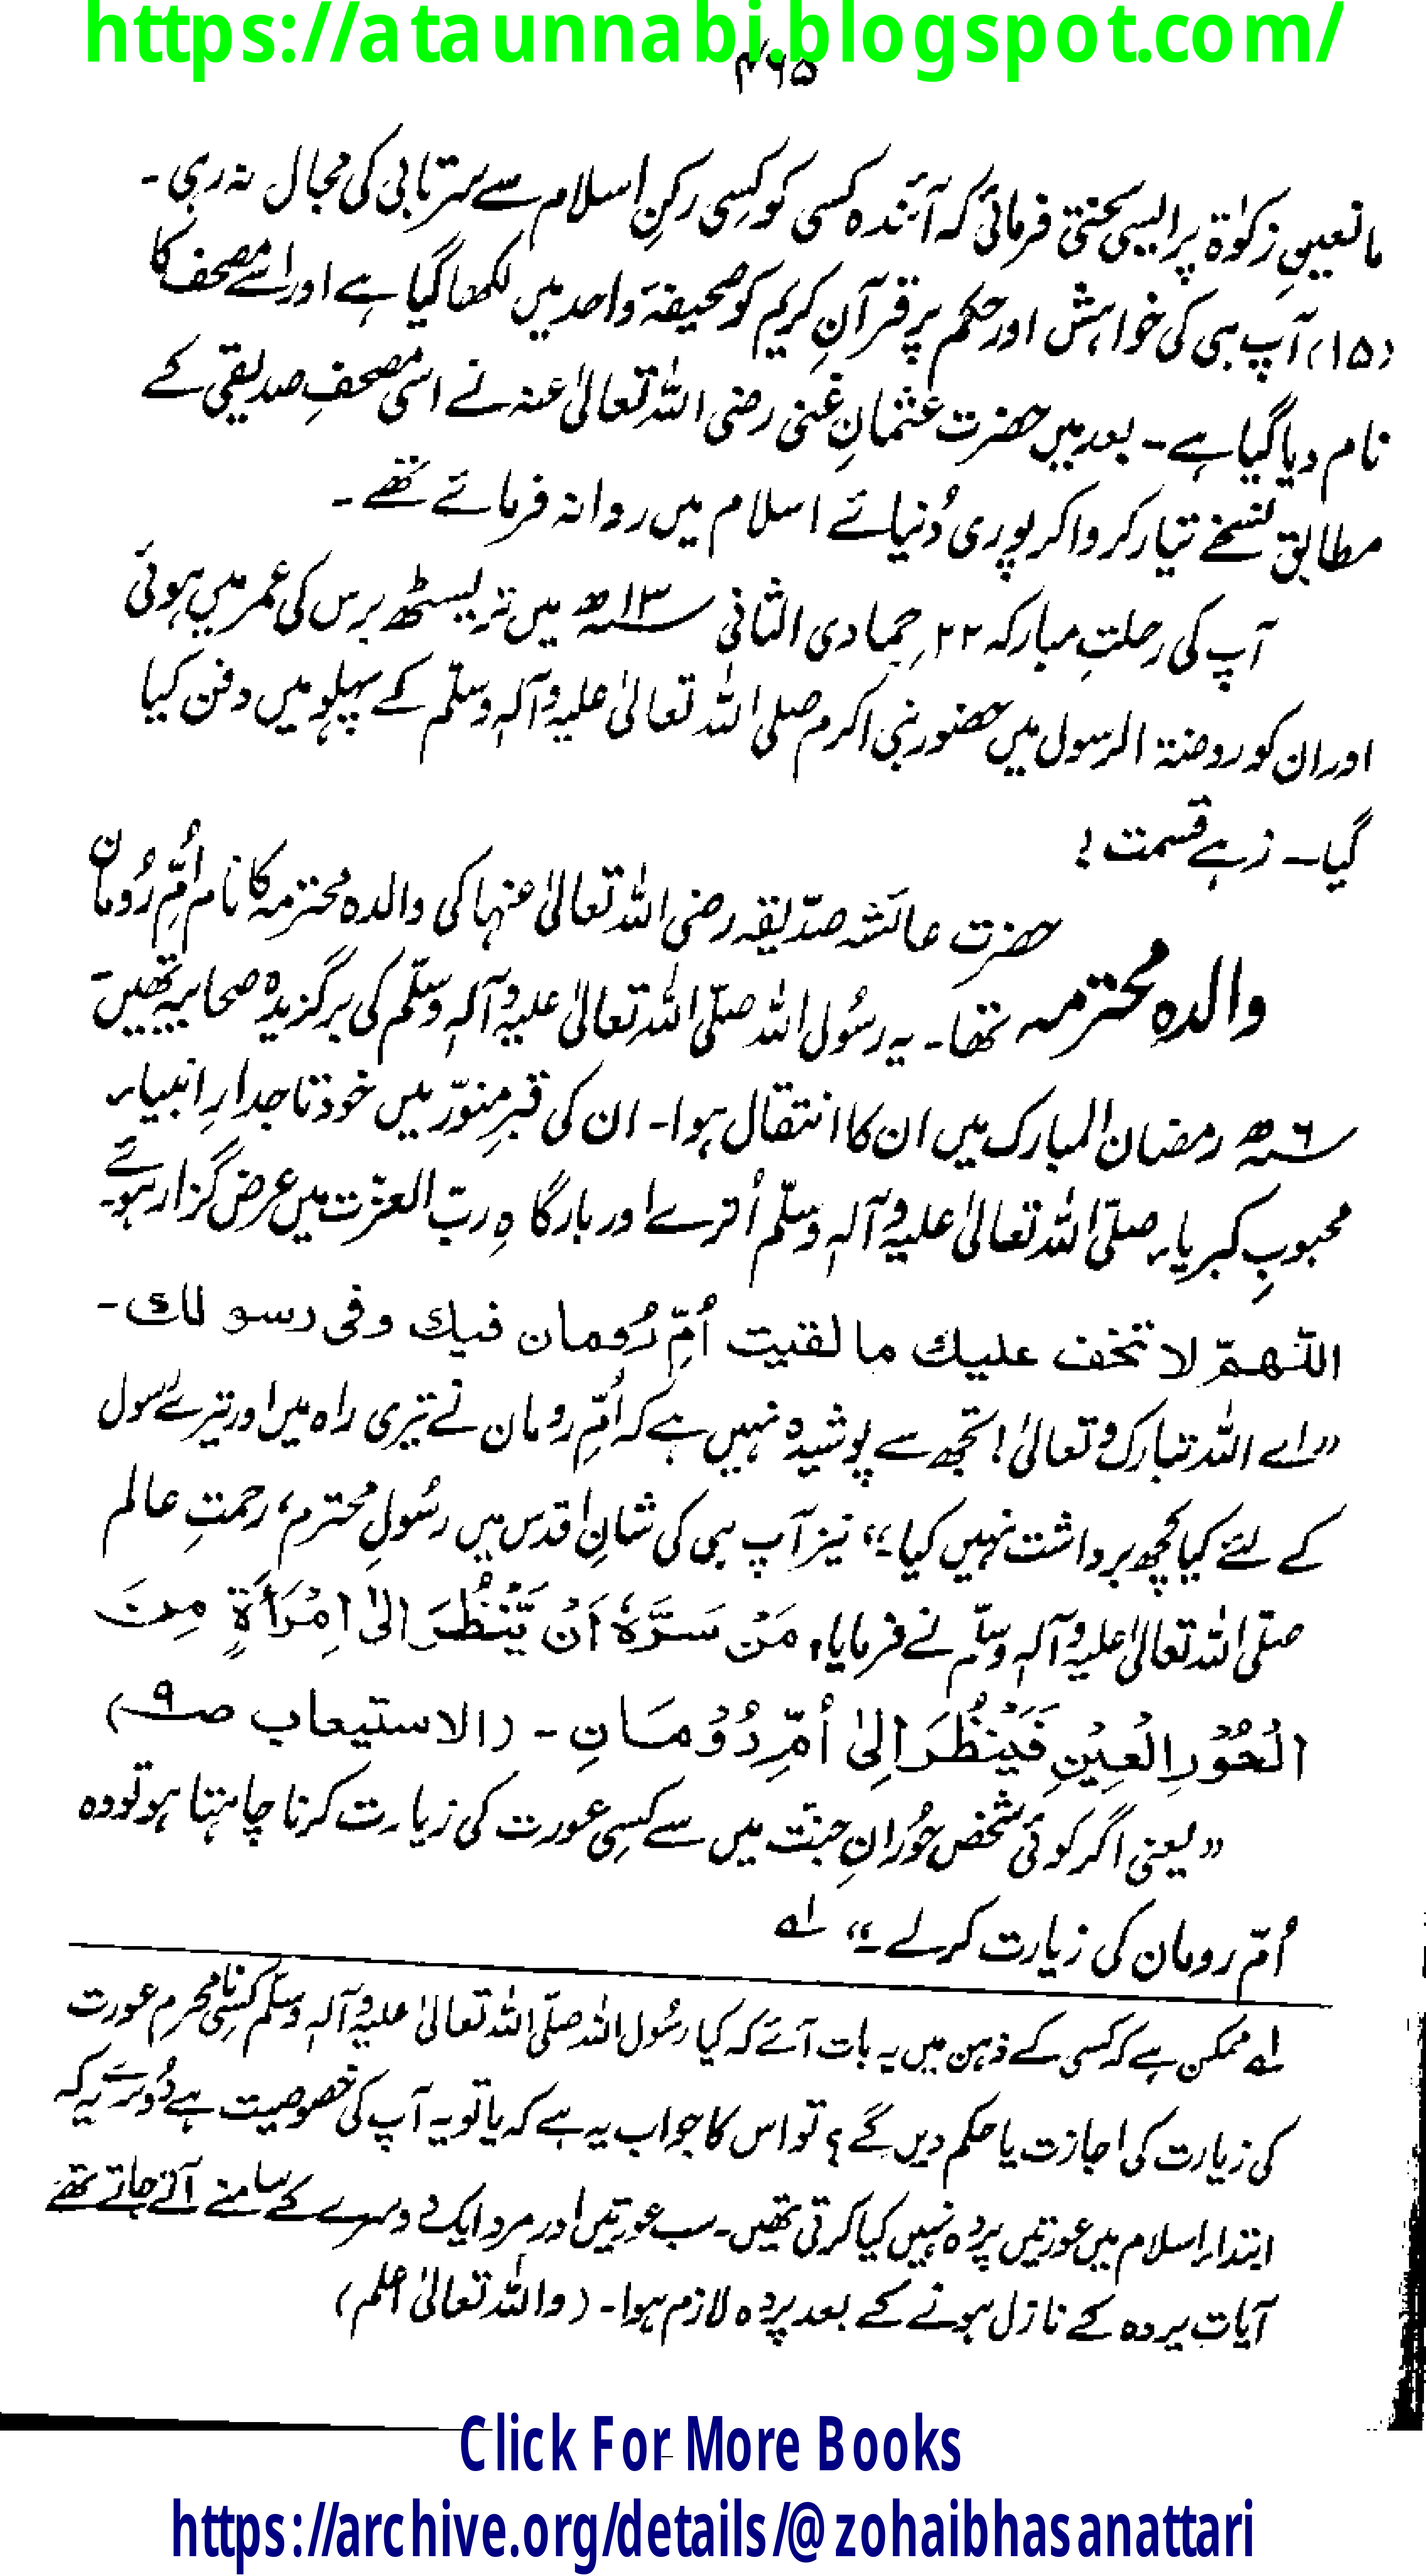 https://ataunnabi.blogspot.com/
۴۶۵
مانعینِ زکوٰۃ پر ایسی سختی فرمائی کہ آئندہ کسی کو کسِی رکنِ اسلام سے سرتابی کی مجال نہ رہی ۔
(۱۵) آپ ہی کی خواہش اور حکم پر قرآنِ کریم کو صحیفۂ واحد میں لکھا گیا ہے اور اسے مصحف کا
نام دیا گیا ہے ۔ بعد میں حضرت عثمانِ غنی رضی اللہ تعالیٰ عنہ نے اسی مصحفِ صدیقی کے
مطابق نسخے تیار کروا کر پوری دُنیائے اسلام میں روانہ فرمائے تھے ۔
آپ کی رحلتِ مبارکہ ۲۲؍ جمادی الثانی ۱۳ھ میں تریسٹھ برس کی عمر میں ہوئی
اور ان کو روضۃ الرسول میں حضور نبی اکرم صلی اللہ تعالیٰ علیہ وآلہٖ وسلّم کے پہلو میں دفن کیا
گیا ۔ زہے قسمت !
حضرت عائشہ صدّیقہ رضی اللہ تعالیٰ عنہا کی والدہ محترمہ کا نام اُمِّ رُومان
والدہِ محترمہ تھا ۔ یہ رسُول اللہ صلّی اللہ تعالیٰ علیہ وآلہٖ وسلّم کی برگزیدہ صحابیہ تھیں ۔
۶ھ رمضان المبارک میں ان کا انتقال ہوا ۔ ان کی قبرِ منوّر میں خود تاجدارِ انبیاء
محبوبِ کبریاء صلّی اللہ تعالیٰ علیہ وآلہٖ وسلّم اُترے اور بارگاہِ ربّ العزّت میں عرض گزار ہوئے ۔
اللّٰھمّ لا تخف علیك ما لقیت اُمِّ رُومان فیك وفی رسو لك ۔
”اے اللہ تبارک وتعالیٰ ! تجھ سے پوشیدہ نہیں ہے کہ اُمِّ رومان نے تیری راہ میں اور تیرے رسُول
کے لئے کیا کچھ برداشت نہیں کیا ۔“ نیز آپ ہی کی شانِ اقدس میں رسُولِ محترم، رحمتِ عالم
صلّی اللہ تعالیٰ علیہ وآلہٖ وسلّم نے فرمایا، مَنْ سَرَّہٗ اَنْ یَّنْظُرَ اِلیٰ اِمْرَأَۃٍ مِنَ
الْحُوْرِ الْعِیْنِ فَیَنْظُرَ اِلیٰ اُمِّ رُوْمَانِ ۔ (الاستیعاب صـ۹)
”یعنی اگر کوئی شخص حُورانِ جنّت میں سے کسِی عورت کی زیارت کرنا چاہتا ہو تو وہ
اُمّ رومان کی زیارت کرلے ۔“ ۱ـہ
۱ـہ ممکن ہے کہ کسی کے ذہن میں یہ بات آئے کہ کیا رسُول اللہ صلّی اللہ تعالیٰ علیہ وآلہٖ وسلّم کسِی نامحرم عورت
کی زیارت کی اجازت یا حکم دیں گے ؟ تو اس کا جواب یہ ہے کہ یا تو یہ آپ کی خصوصیت ہے دُوسرے یہ کہ
ابتداءِ اسلام میں عورتیں پردہ نہیں کیا کرتی تھیں ۔ سب عورتیں اور مرد ایک دوسرے کے سامنے آتے جاتے تھے
آیاتِ پردہ کے نازل ہونے کے بعد پردہ لازم ہوا ۔ (واللہ تعالیٰ اعلم)
Click For More Books
https://archive.org/details/@zohaibhasanattari